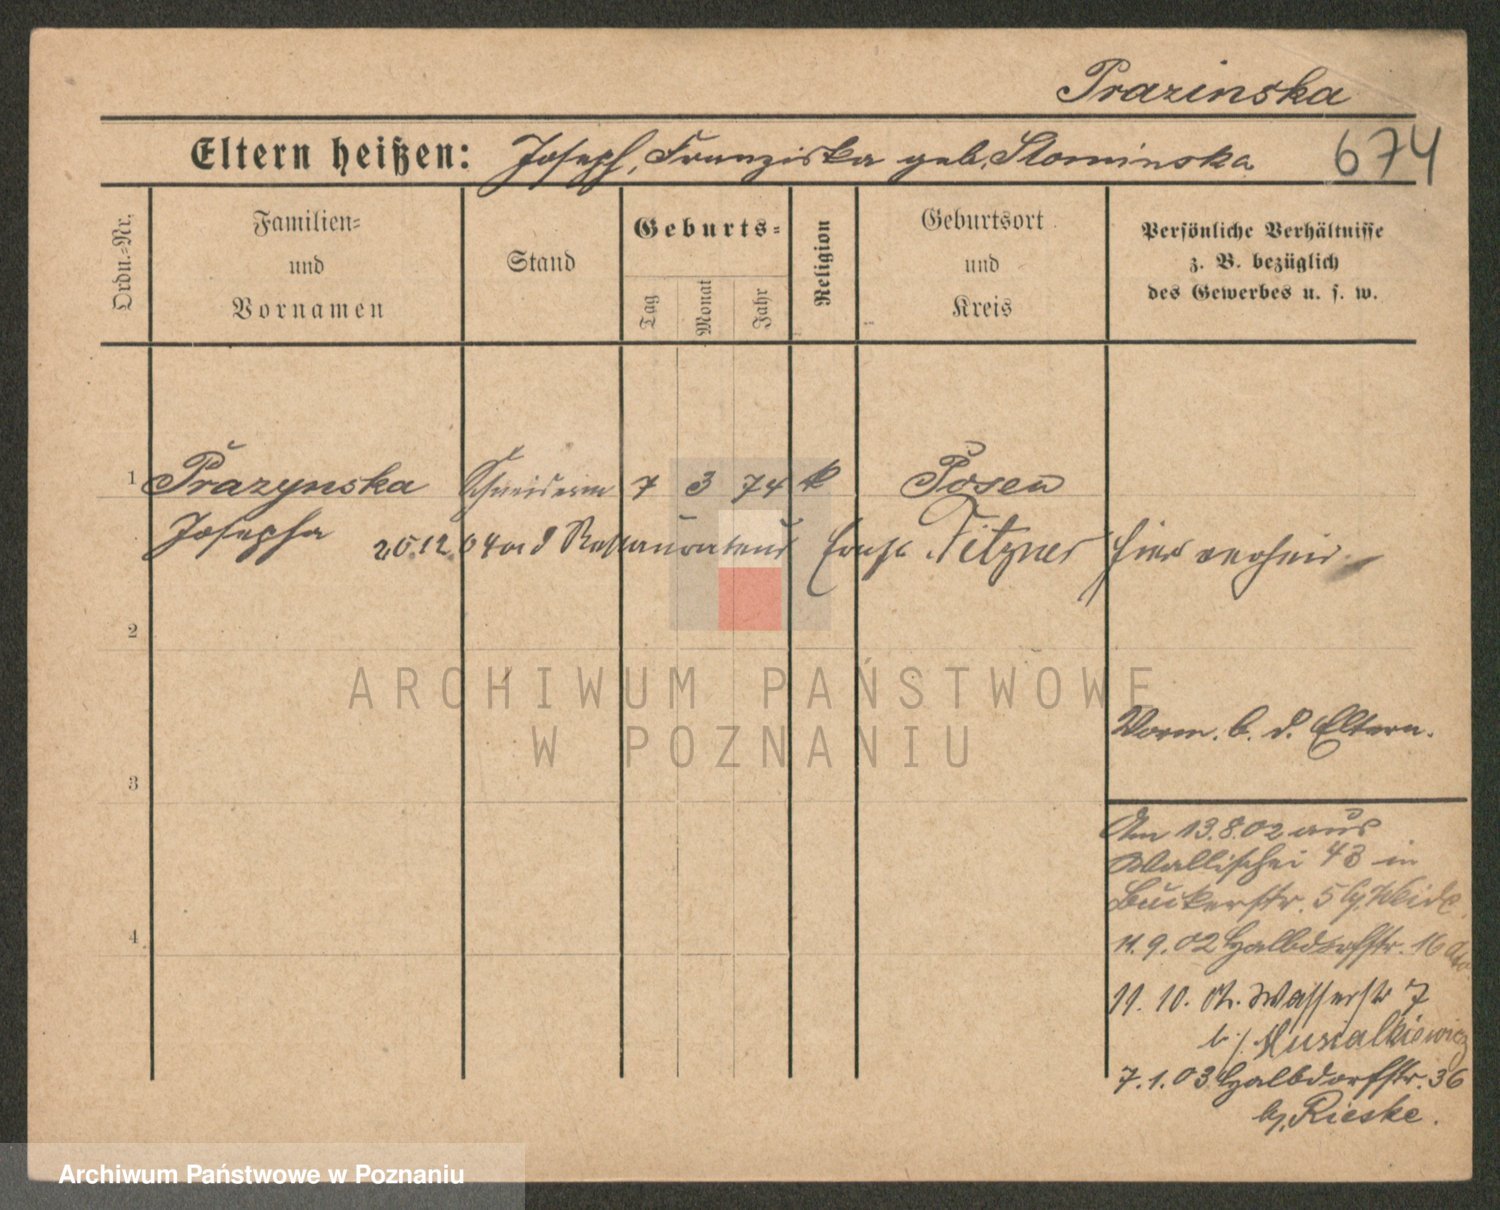 Prazinska
Eltern heißen: Joseph, Franziska geb. Slominska 674
Ordn.-Nr.
Familien-
und
Vornamen
Stand
Geburts-
Tag
Monat
Jahr
Religion
Geburtsort
und
Kreis
Persönliche Verhältnisse
z. B. bezüglich
des Gewerbes u. s. w.
1 Prazynska Schneiderin 7 3 74 k Posen
Josepha 20.12.04 Restaurateur Ernst Titzner hier verheir.
2
ARCHIWUM PAŃSTWOWE
W POZNANIU
Vorm. b. d. Eltern.
3
Am 13.8.02 aus
Wallischei 43 in
Bückerstr. 5 b/ Weide
4
11.9.02 Halbdorfstr. 16
11.10.02. Wasserstr 7
b/ Musialkiewicz
7.1.03 Halbdorfstr. 36
b/ Rieske.
Archiwum Państwowe w Poznaniu